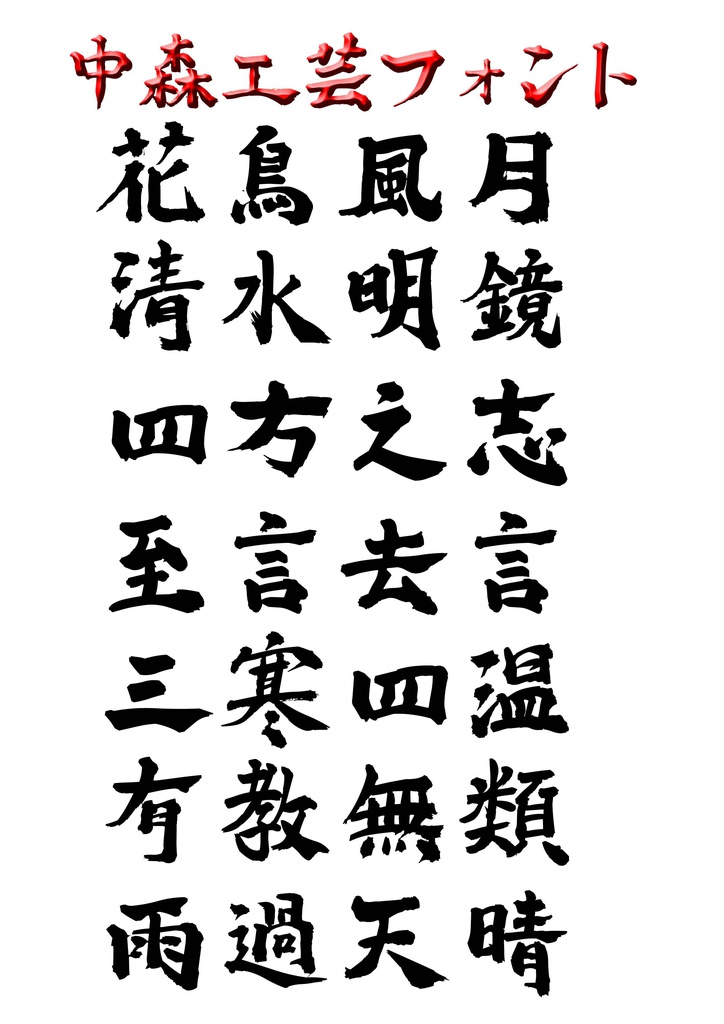 中森工芸フォント
花鳥風月
清水明鏡
四方之志
至言去言
三寒四温
有教無類
雨過天晴